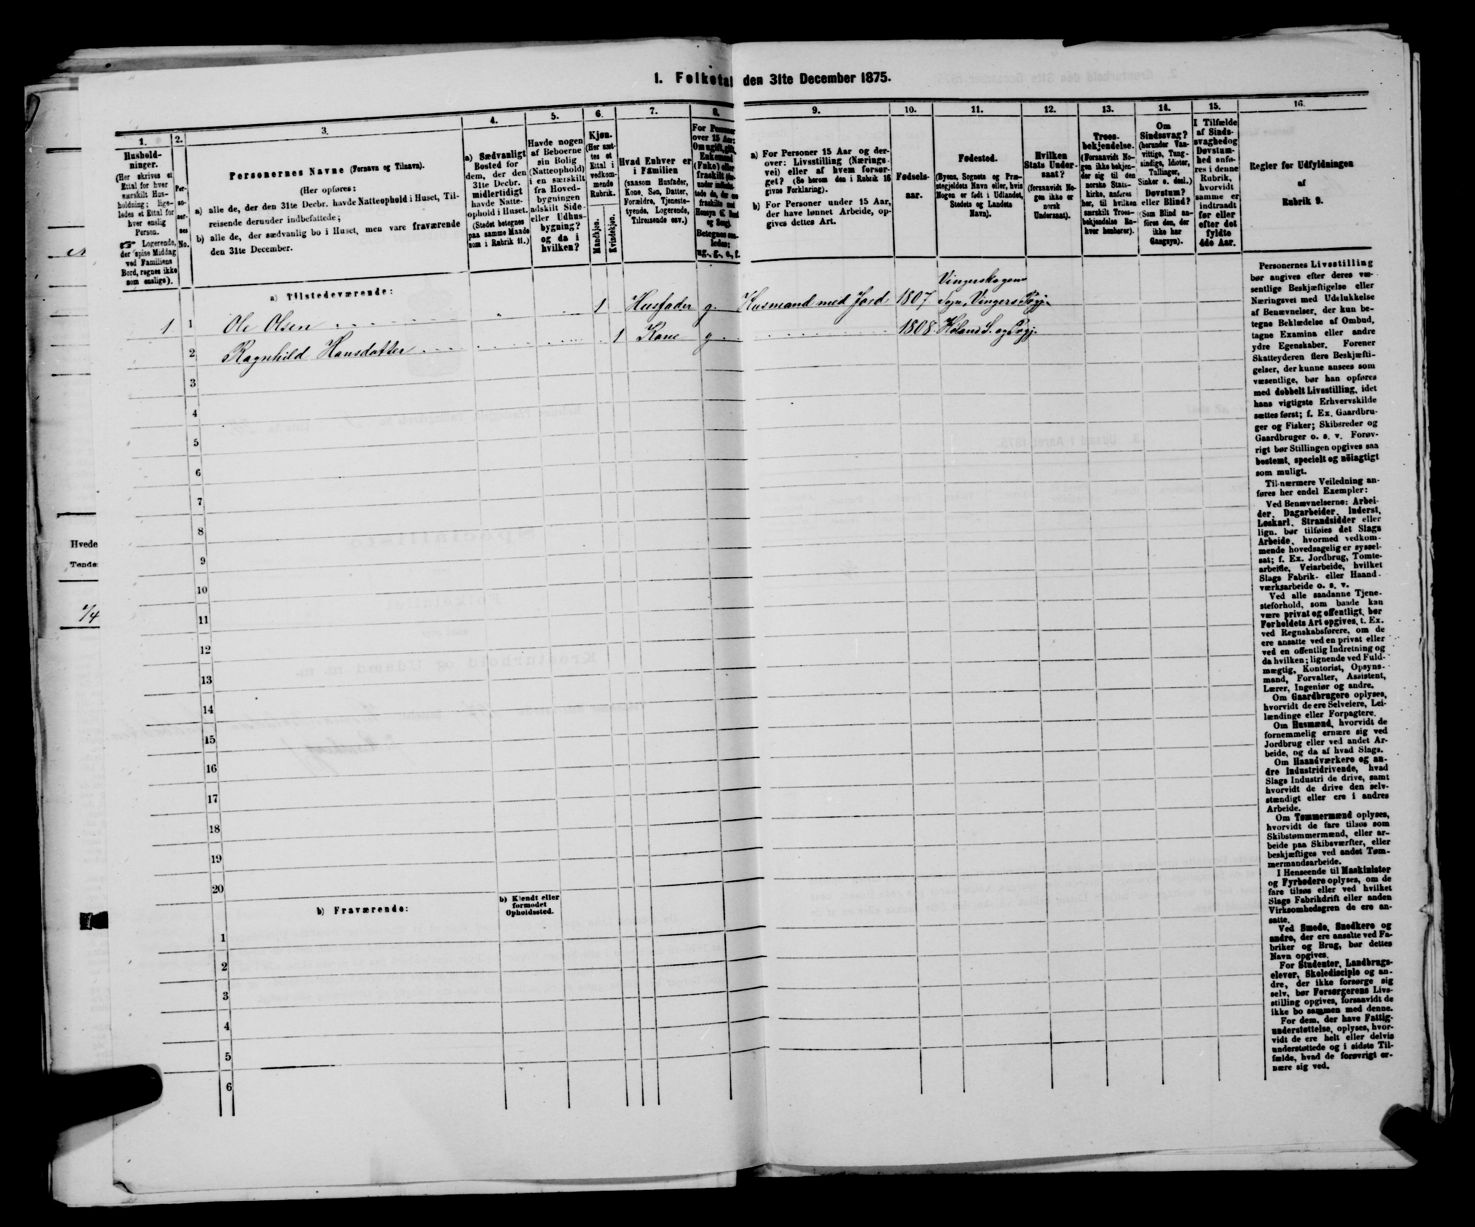 1. Folketal den 31te December 1875.
1.
2.
3.
4.
5.
6.
7.
8.
9.
10.
11.
12.
13.
14.
15.
16.
Hushold-
ninger.
(Her skrives et
Ettal for hver
særskilt Hus-
holdning; lige-
ledes et Ettal for
hver enslig
Person.
☞ Logerende,
der spise Middag
ved Familiens
Bord, regnes ikke
som enslige).
Per-
so-
ner-
nes
No.
Personernes Navne (Fornavn og Tilnavn).
(Her opføres:
a) alle de, der den 31te Decbr. havde Natteophold i Huset, Til-
reisende derunder indbefattede;
b) alle de, der sædvanlig bo i Huset, men vare fraværende
den 31te December.
a) Sædvanligt
Bosted for
dem, der den
31te Decbr.
midlertidigt
havde Natte-
ophold i Huset.
(Stedet betegnes
paa samme Maade
som i Rubrik 11.)
Havde nogen
af Beboerne
sin Bolig
(Natteophold)
i en særskilt
fra Hoved-
bygningen
adskilt Side-
eller Udhus-
bygning?
og da i
hvilken?
Kjøn.
(Her sæt-
tes et
Ettal i
vedkom-
mende
Rubrik.
Mandkjøn.
Kvindekjøn.
Hvad Enhver er
i Familien
(saasom Husfader,
Kone, Søn, Datter,
Forældre, Tjeneste-
tyende, Logerende,
Tilreisende osv.)
For Personer
over 15 Aar:
Om ugift, gift,
Enkemand
(Enke) eller
fraskilt
ug., g., e., f.
a) For Personer 15 Aar og der-
over: Livsstilling (Nærings-
vei) eller af hvem forsør-
get? (Se herom den i Rubrik 16
givne Forklaring).
b) For Personer under 15 Aar,
der have lønnet Arbeide, op-
gives dettes Art.
Fødsels-
aar.
Fødested.
(Byens, Sognets og Præ-
stegjeldets Navn eller, hvis
Nogen er født i Udlandet,
Stedets og Landets
Navn).
Hvilken
Stats Under-
saat?
(forsaavidt No-
gen ikke er
norsk
Undersaat).
Troes-
bekjendelse.
(Forsaavidt No-
gen ikke bekjen-
der sig til den
norske Stats-
kirke, anføres
her, til hvilken
særskilt Troes-
bekjendelse En-
hver henhører).
Om
Sindssvag?
(herunder Van-
vittige, Tung-
sindige, Idioter,
Sinker o. desl.)
Døvstum?
eller Blind?
(Som Blind an-
føres den, der
ikke har
Gangsyn).
I Tilfælde
af Sinds-
svaghed og
Døvstum-
hed anfø-
res i denne
Rubrik,
hvorvidt
samme er
indtraadt
før eller
efter det
fyldte
4de Aar.
Regler for Udfyldningen
af
Rubrik 9.
a) Tilstedeværende:
1 1 Ole Olsen 1 Husfader g. Husmand med Jord 1807 Vingerskogen
Sogn, Vingers Pgj.
2 Ragnhild Hansdatter 1 Kone g. 1808 Höland S. og Pgj.
3
4
5
6
7
8
9
10
11
12
13
14
15
16
17
18
19
20
b) Fraværende:
b) Kjendt eller
formodet
Opholdssted.
1
2
3
4
5
6
Hvede
Tønde
1/4
Personernes Livsstilling
bør angives efter deres væ-
sentlige Beskjæftigelse eller
Næringsvei med Udelukkelse
af Benævnelser, der kun be-
tegne Beklædelse af Ombud,
tagne Examina eller andre
ydre Egenskaber. Forener
Skatteyderen flere Beskjæfti-
gelser, der kunne ansees som
væsentlige, bør han opføres
med dobbelt Livsstilling, idet
hans vigtigste Erhvervskilde
sættes først; f. Ex. Gaardbru-
ger og Fisker; Skibsreder og
Gaardbruger o. s. v. Forøv-
rigt bør Stillingen opgives saa
bestemt, specielt og nøiagtigt
som muligt.
Til nærmere Veiledning an-
føres her endel Exempler:
Ved Benævnelserne: Arbei-
der, Dagarbeider, Inderst,
Løskarl, Strandsidder eller
lign. bør tilføies det Slags
Arbeide, hvormed vedkom-
mende hovedsagelig er syssel-
sat; f. Ex. Jordbrug, Tomte-
arbeide, Veiarbeide, hvilket
Slags Fabrik- eller Haand-
værksarbeide o. s. v.
Ved alle saadanne Tjene-
steforhold, som baade kan
være privat og offentligt, bør
Forholdets Art opgives, t. Ex.
ved Regnskabsførere, om de
ere ansatte ved en privat eller
ved en offentlig Indretning og
da hvilken; lignende ved Fuld-
mægtig, Kontorist, Opsyns-
mand, Forvalter, Assistent,
Lærer, Ingeniør og andre.
Om Gaardbrugere oplyses,
hvorvidt de ere Selveiere, Lei-
lændinge eller Forpagtere.
Om Husmænd, hvorvidt de
fornemmelig ernære sig ved
Jordbrug eller ved andet Ar-
beide, og da af hvad Slags.
Om Haandværkere og an-
dre Industridrivende, hvad
Slags Industri de drive, samt
hvorvidt de drive den selv-
stændigt eller ere i andres
Arbeide.
Om Tømmermænd oplyses,
hvorvidt de fare tilsøs som
Skibstømmermænd, eller ar-
beide paa Skibsværfter, eller
beskjæftiges ved andet Tøm-
mermandsarbeide.
I Henseende til Maskinister
og Fyrbødere oplyses, om de
fare tilsøs eller ved hvilket
Slags Fabrikdrift eller anden
Virksomhedsgren de ere an-
satte.
Ved Smede, Snedkere og
andre, der ere ansatte ved Fa-
briker og Brug, bør dettes
Navn opgives.
For Studenter, Landbrugs-
elever, Skoledisciple og an-
dre, der ikke forsørge sig
selv, bør Forsørgerens Livs-
stilling opgives, forsaavidt de
ikke bo sammen med denne.
For dem, der have Fattig-
understøttelse, oplyses, hvor-
vidt de ere helt eller delvis
understøttede og i sidste Til-
fælde, hvad de forøvrigt er-
nære sig ved.